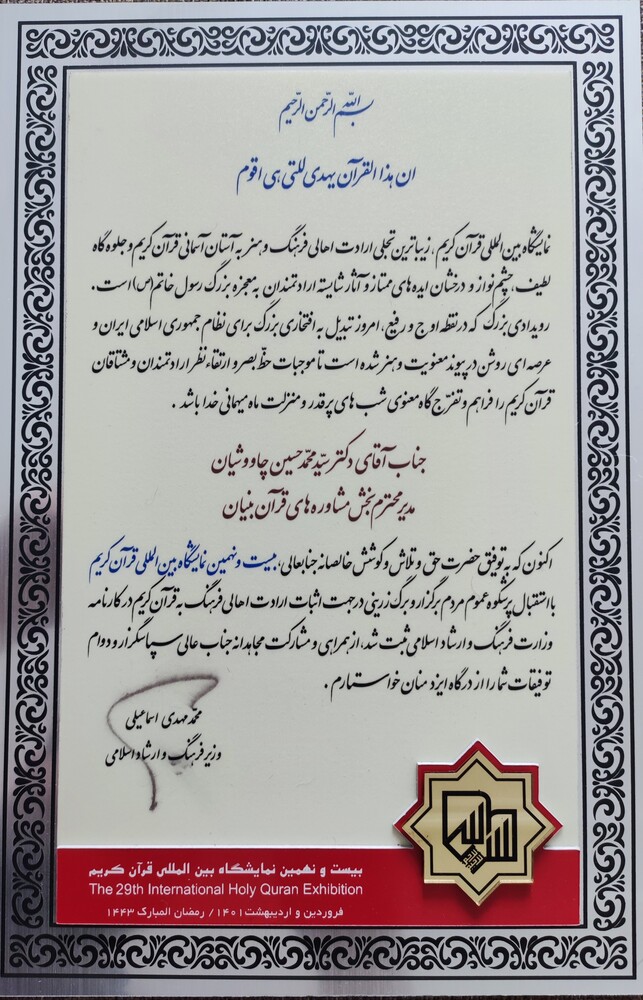 بسم الله الرحمن الرحیم
ان هذا القرآن یهدی للتی هی اقوم
نمایشگاه بین المللی قرآن کریم، زیباترین تجلی ارادت اهالی فرهنگ و هنر به آستان آسمانی قرآن کریم و جلوه گاه
لطیف، چشم نواز و درخشان ایده های ممتاز و آثار شایسته ارادتمندان به معجزه بزرگ رسول خاتم(ص) است.
رویدادی بزرگ که در نقطه اوج و رفیع، امروز تبدیل به افتخاری بزرگ برای نظام جمهوری اسلامی ایران و
عرصه ای روشن در پیوند معنویت و هنر شده است تا موجبات حظّ بصر و ارتقاء نظر ارادتمندان و مشتاقان
قرآن کریم را فراهم و تفرّج گاه معنوی شب های پرقدر و منزلت ماه میهمانی خدا باشد.
جناب آقای دکتر سیّد محمّد حسین چاووشیان
مدیر محترم بخش مشاوره های قرآن بنیان
اکنون که به توفیق حضرت حق و تلاش و کوشش خالصانه جنابعالی، بیست و نهمین نمایشگاه بین المللی قرآن کریم
با استقبال پرشکوه عموم مردم برگزار و برگ زرینی در جهت اثبات ارادت اهالی فرهنگ به قرآن کریم در کارنامه
وزارت فرهنگ و ارشاد اسلامی ثبت شد، از همراهی و مشارکت مجاهدانه جناب عالی سپاسگزار و دوام
توفیقات شما را از درگاه ایزد منان خواستارم.
محمّد مهدی اسماعیلی
وزیر فرهنگ و ارشاد اسلامی
بیست و نهمین نمایشگاه بین المللی قرآن کریم
The 29th International Holy Quran Exhibition
فروردین و اردیبهشت ۱۴۰۱/ رمضان المبارک ۱۴۴۳